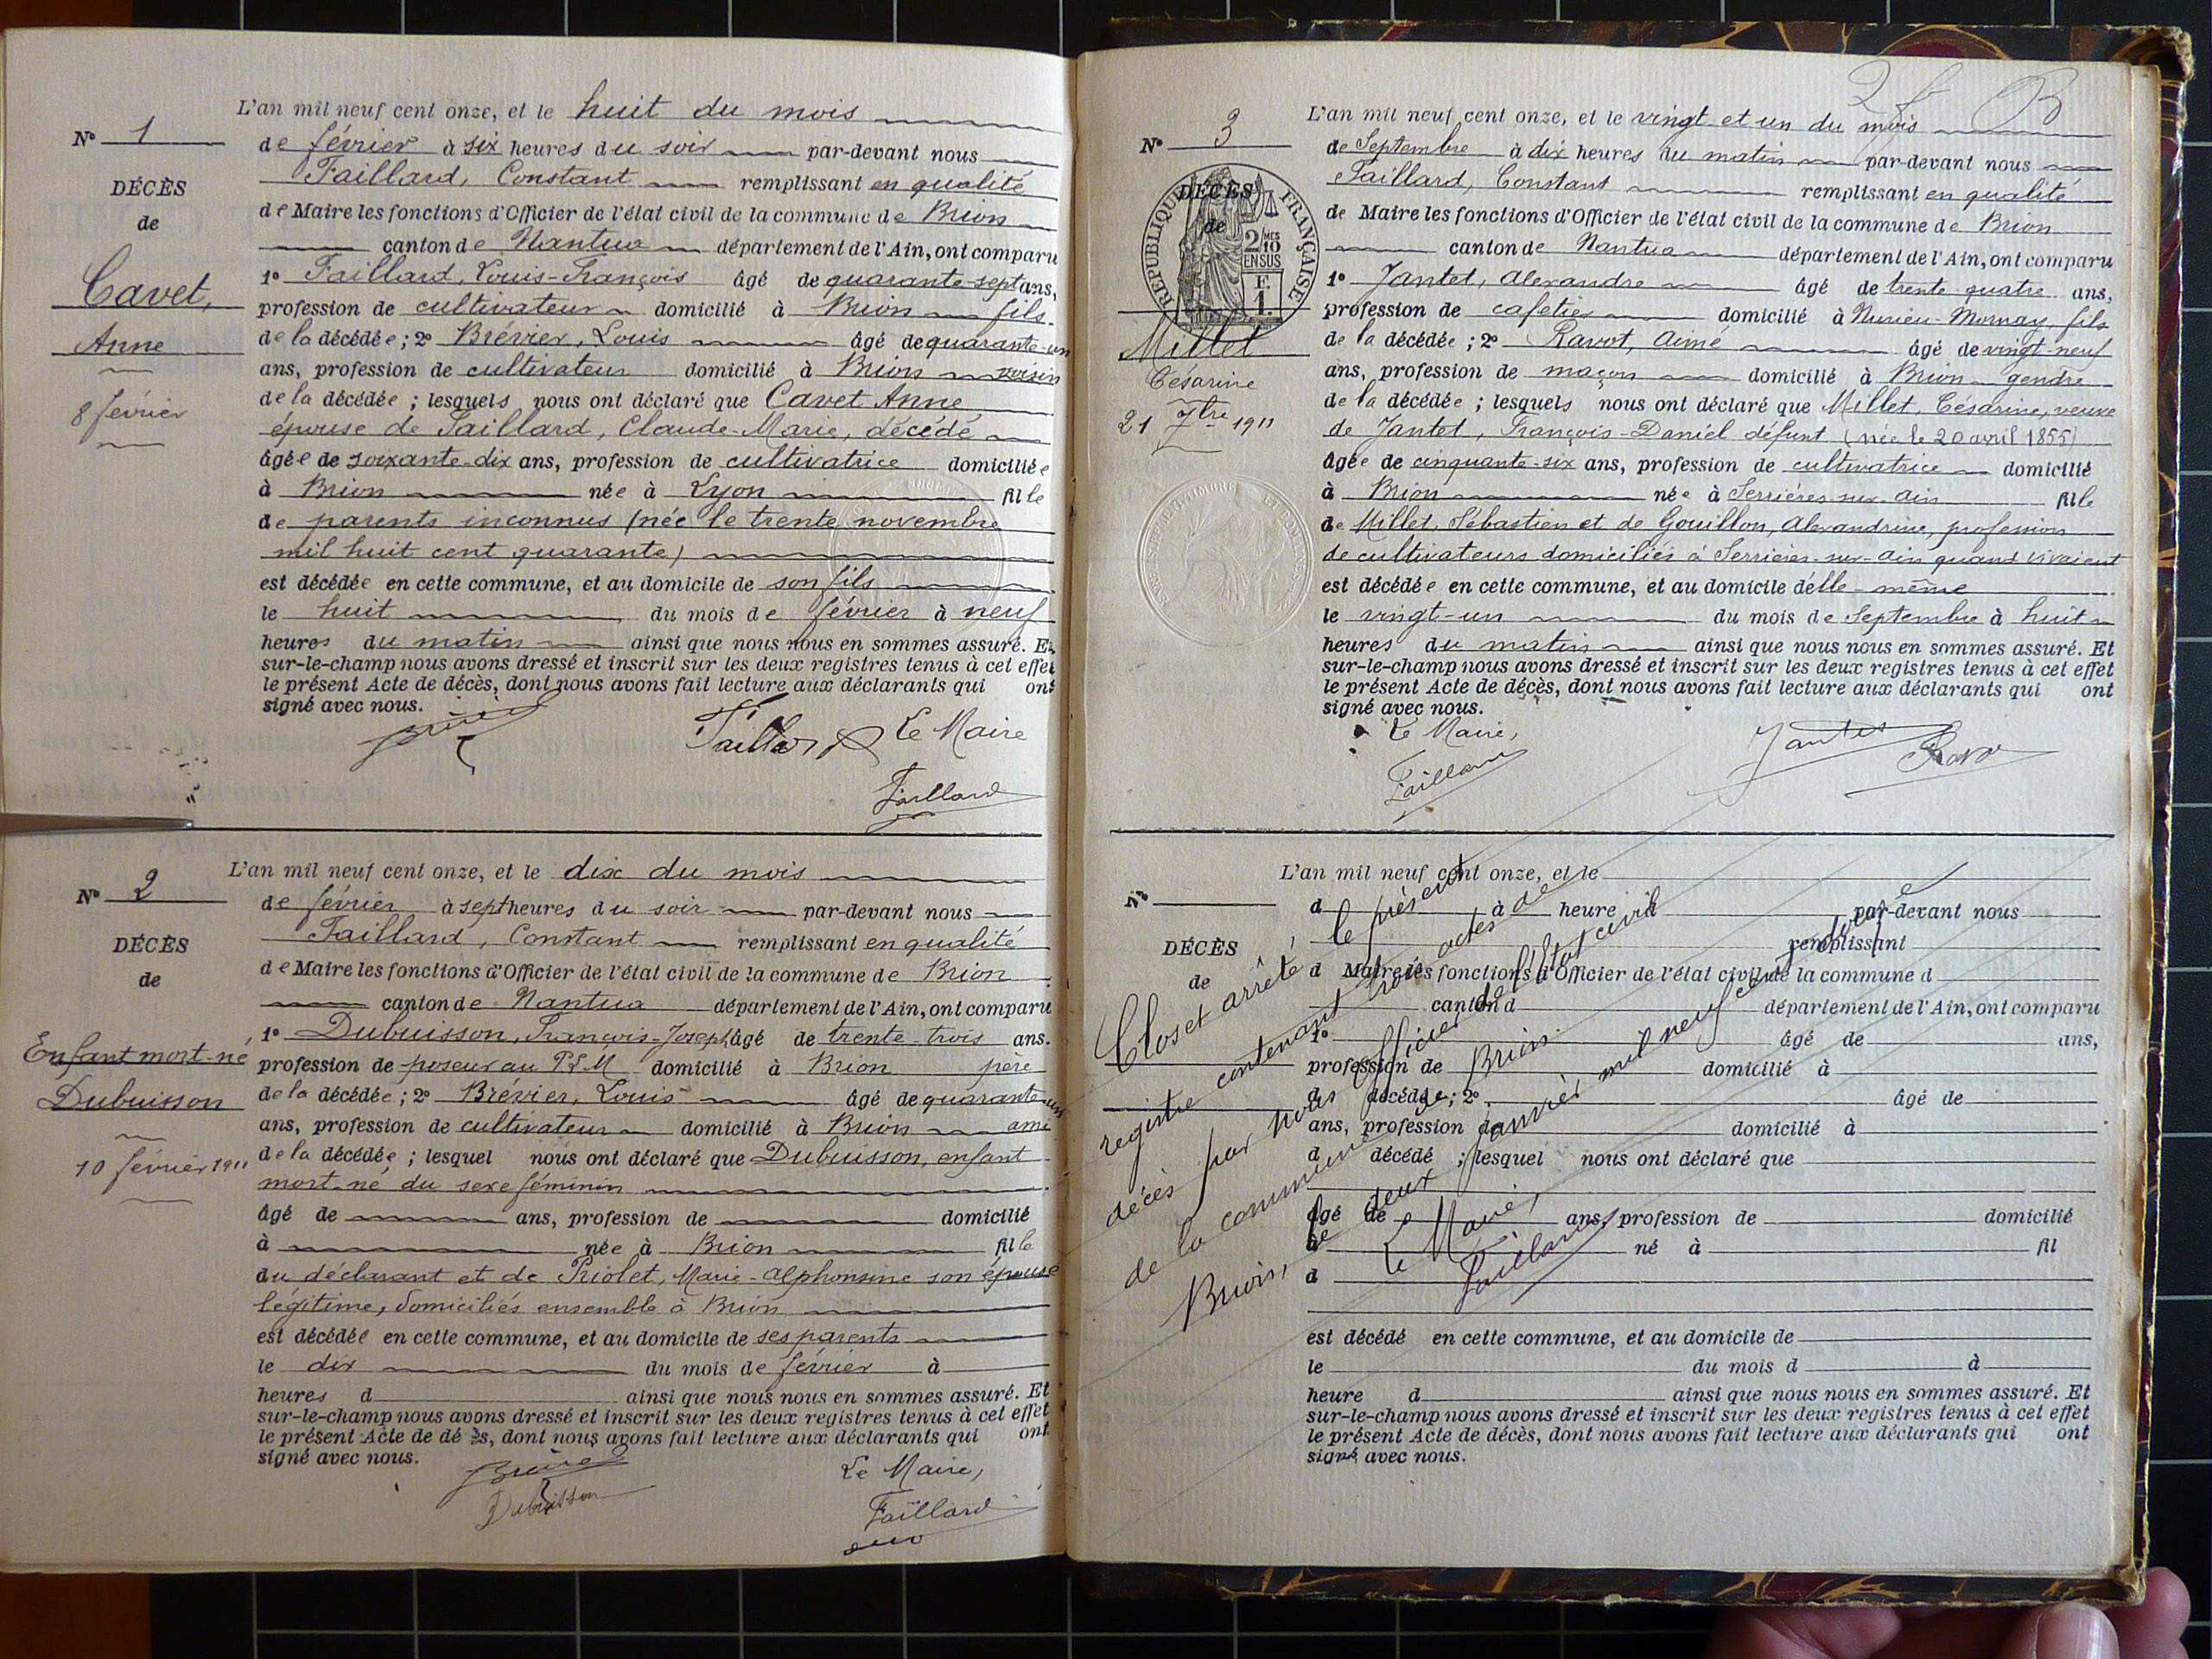 N° 1
DÉCÈS
de
Cavet,
Anne
8 février
L'an mil neuf cent onze, et le huit du mois
de février à six heures du soir par-devant nous
Taillard, Constant remplissant en qualité
de Maire les fonctions d'Officier de l'état civil de la commune de Brion
canton de Nantua département de l'Ain, ont comparu
1° Taillard, Louis-François âgé de quarante-sept ans,
profession de cultivateur domicilié à Brion fils
de la décédée ; 2° Brévier, Louis âgé de quarante-un
ans, profession de cultivateur domicilié à Brion voisin
de la décédée ; lesquels nous ont déclaré que Cavet Anne
épouse de Taillard, Claude-Marie, décédé
âgée de soixante-dix ans, profession de cultivatrice domiciliée
à Brion née à Lyon fille
de parents inconnus (née le trente novembre
mil huit cent quarante)
est décédée en cette commune, et au domicile de son fils
le huit du mois de février à neuf
heures du matin ainsi que nous nous en sommes assuré. Et
sur-le-champ nous avons dressé et inscrit sur les deux registres tenus à cet effet
le présent Acte de décès, dont nous avons fait lecture aux déclarants qui ont
signé avec nous.
Taillard Le Maire
Taillard
N° 2
DÉCÈS
de
Enfant mort-né
Dubuisson
10 février 1911
L'an mil neuf cent onze, et le dix du mois
de février à sept heures du soir par-devant nous
Taillard, Constant remplissant en qualité
de Maire les fonctions d'Officier de l'état civil de la commune de Brion
canton de Nantua département de l'Ain, ont comparu
1° Dubuisson, François-Joseph, âgé de trente-trois ans.
profession de poseur au PLM domicilié à Brion père
de la décédée ; 2° Brévier, Louis âgé de quarante-un
ans, profession de cultivateur domicilié à Brion ami
de la décédée ; lesquel nous ont déclaré que Dubuisson, enfant
mort-né du sexe féminin
âgé de ans, profession de domicilié
à née à Brion fille
du déclarant et de Priolet, Marie-Alphonsine son épouse
légitime, domiciliés ensemble à Brion
est décédée en cette commune, et au domicile de ses parents
le dix du mois de février à
heures d ainsi que nous nous en sommes assuré. Et
sur-le-champ nous avons dressé et inscrit sur les deux registres tenus à cet effet
le présent Acte de décès, dont nous avons fait lecture aux déclarants qui ont
signé avec nous.
Le Maire,
Dubuisson
Taillard
N° 3
DÉCÈS
de
RÉPUBLIQUE FRANÇAISE
2/10 MES
EN SUS
F.
1.
Millet
Césarine
21 7bre 1911
L'an mil neuf cent onze, et le vingt et un du mois
de Septembre à dix heures du matin par-devant nous
Taillard, Constant remplissant en qualité
de Maire les fonctions d'Officier de l'état civil de la commune de Brion
canton de Nantua département de l'Ain, ont comparu
1° Jantet, Alexandre âgé de trente-quatre ans,
profession de cafetier domicilié à Nurieu-Mornay, fils
de la décédée ; 2° Ravot, Aimé âgé de vingt-neuf
ans, profession de maçon domicilié à Brion gendre
de la décédée ; lesquels nous ont déclaré que Millet, Césarine, veuve
de Jantet, François-Daniel défunt (née le 20 avril 1855)
âgée de cinquante-six ans, profession de cultivatrice domicilié
à Brion née à Serrières-sur-Ain fille
de Millet, Sébastien et de Gouillon, Alexandrine, profession
de cultivateurs domiciliés à Serrières-sur-Ain quand vivaient
est décédée en cette commune, et au domicile d'elle-même
le vingt-un du mois de Septembre à huit
heures du matin ainsi que nous nous en sommes assuré. Et
sur-le-champ nous avons dressé et inscrit sur les deux registres tenus à cet effet
le présent Acte de décès, dont nous avons fait lecture aux déclarants qui ont
signé avec nous.
Le Maire,
Taillard Jantet Ravot
N°
DÉCÈS
de
L'an mil neuf cent onze, et le
d à heure d par-devant nous
remplissant
d Maire les fonctions d'Officier de l'état civil de la commune d
canton d département de l'Ain, ont comparu
1° âgé de ans,
profession de domicilié à
d décédé ; 2° âgé de
ans, profession de domicilié à
d décédé ; lesquel nous ont déclaré que
âgé de ans, profession de domicilié
à né à fil
d
est décédé en cette commune, et au domicile de
le du mois d à
heure d ainsi que nous nous en sommes assuré. Et
sur-le-champ nous avons dressé et inscrit sur les deux registres tenus à cet effet
le présent Acte de décès, dont nous avons fait lecture aux déclarants qui ont
signé avec nous.
Clos et arrêté, le présent
registre contenant trois actes de
décès par nous officier de l'état civil
de la commune de Brion
Brion, le deux janvier mil neuf cent douze
Le Maire,
Taillard